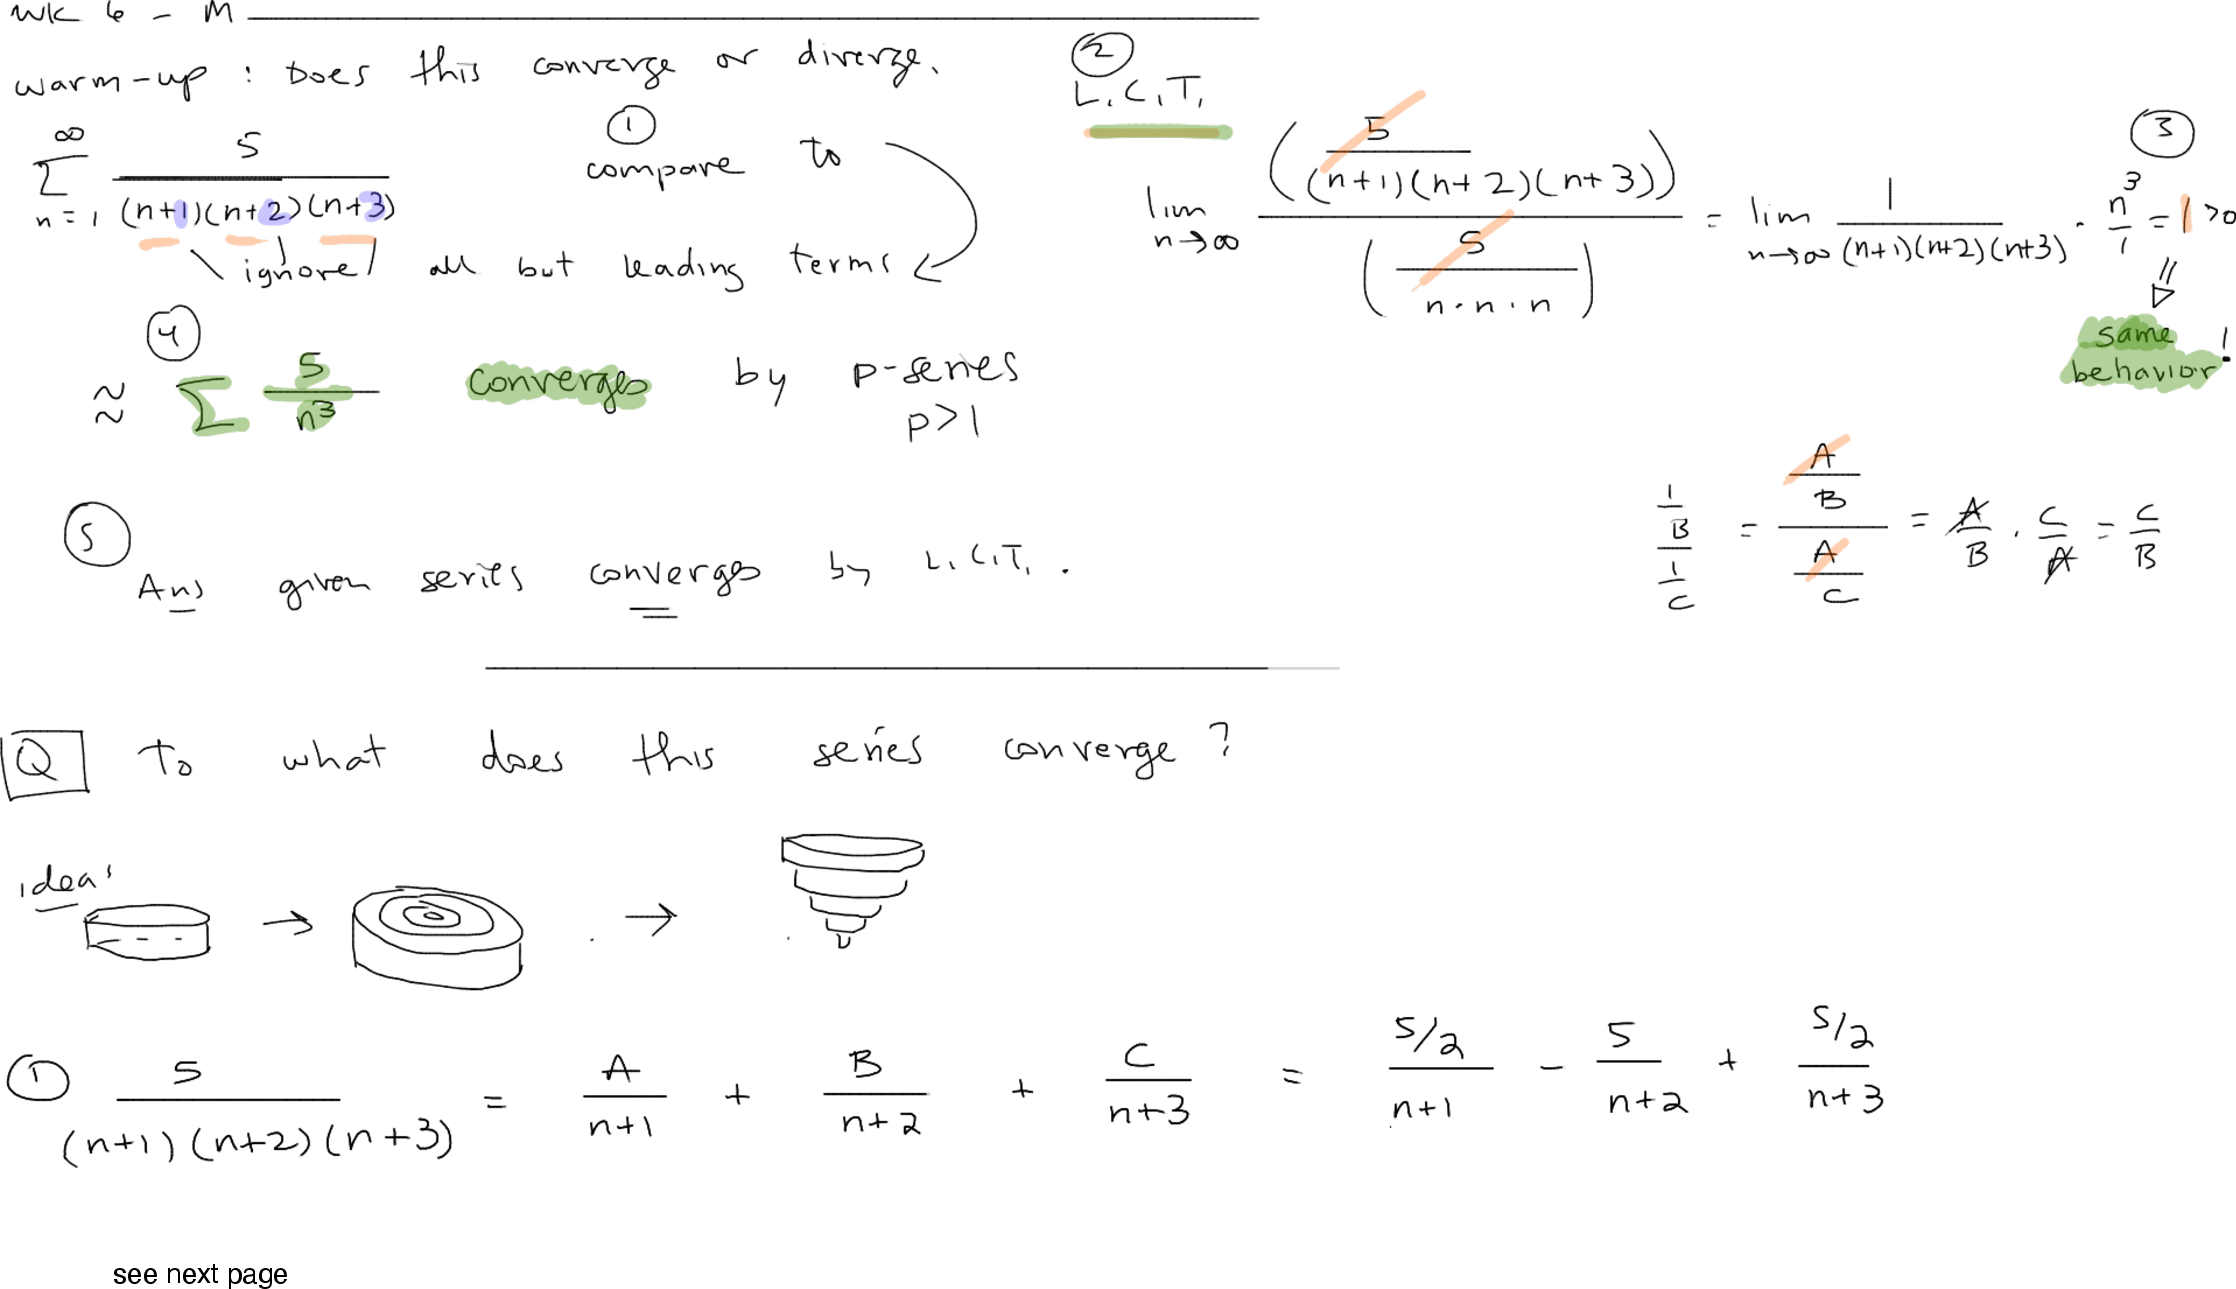 WK 6 - M
warm-up : Does this converge or diverge.
∞ ∑ n=1 5/((n+1)(n+2)(n+3))
① compare to
\ ignore / all but leading terms
② L.C.T.
lim n→∞ (5/((n+1)(n+2)(n+3))) / (5/(n·n·n)) = lim n→∞ 1/((n+1)(n+2)(n+3)) · n³/1 = 1 >0
③
same behavior!
④ ≈ ∑ 5/n³ converges by p-series
p>1
(1/B)/(1/C) = (A/B)/(A/C) = A/B · C/A = C/B
⑤ Ans given series converges by L.C.T.
Q To what does this series converge?
idea:
→ →
① 5/((n+1)(n+2)(n+3)) = A/(n+1) + B/(n+2) + C/(n+3) = (5/2)/(n+1) - 5/(n+2) + (5/2)/(n+3)
see next page